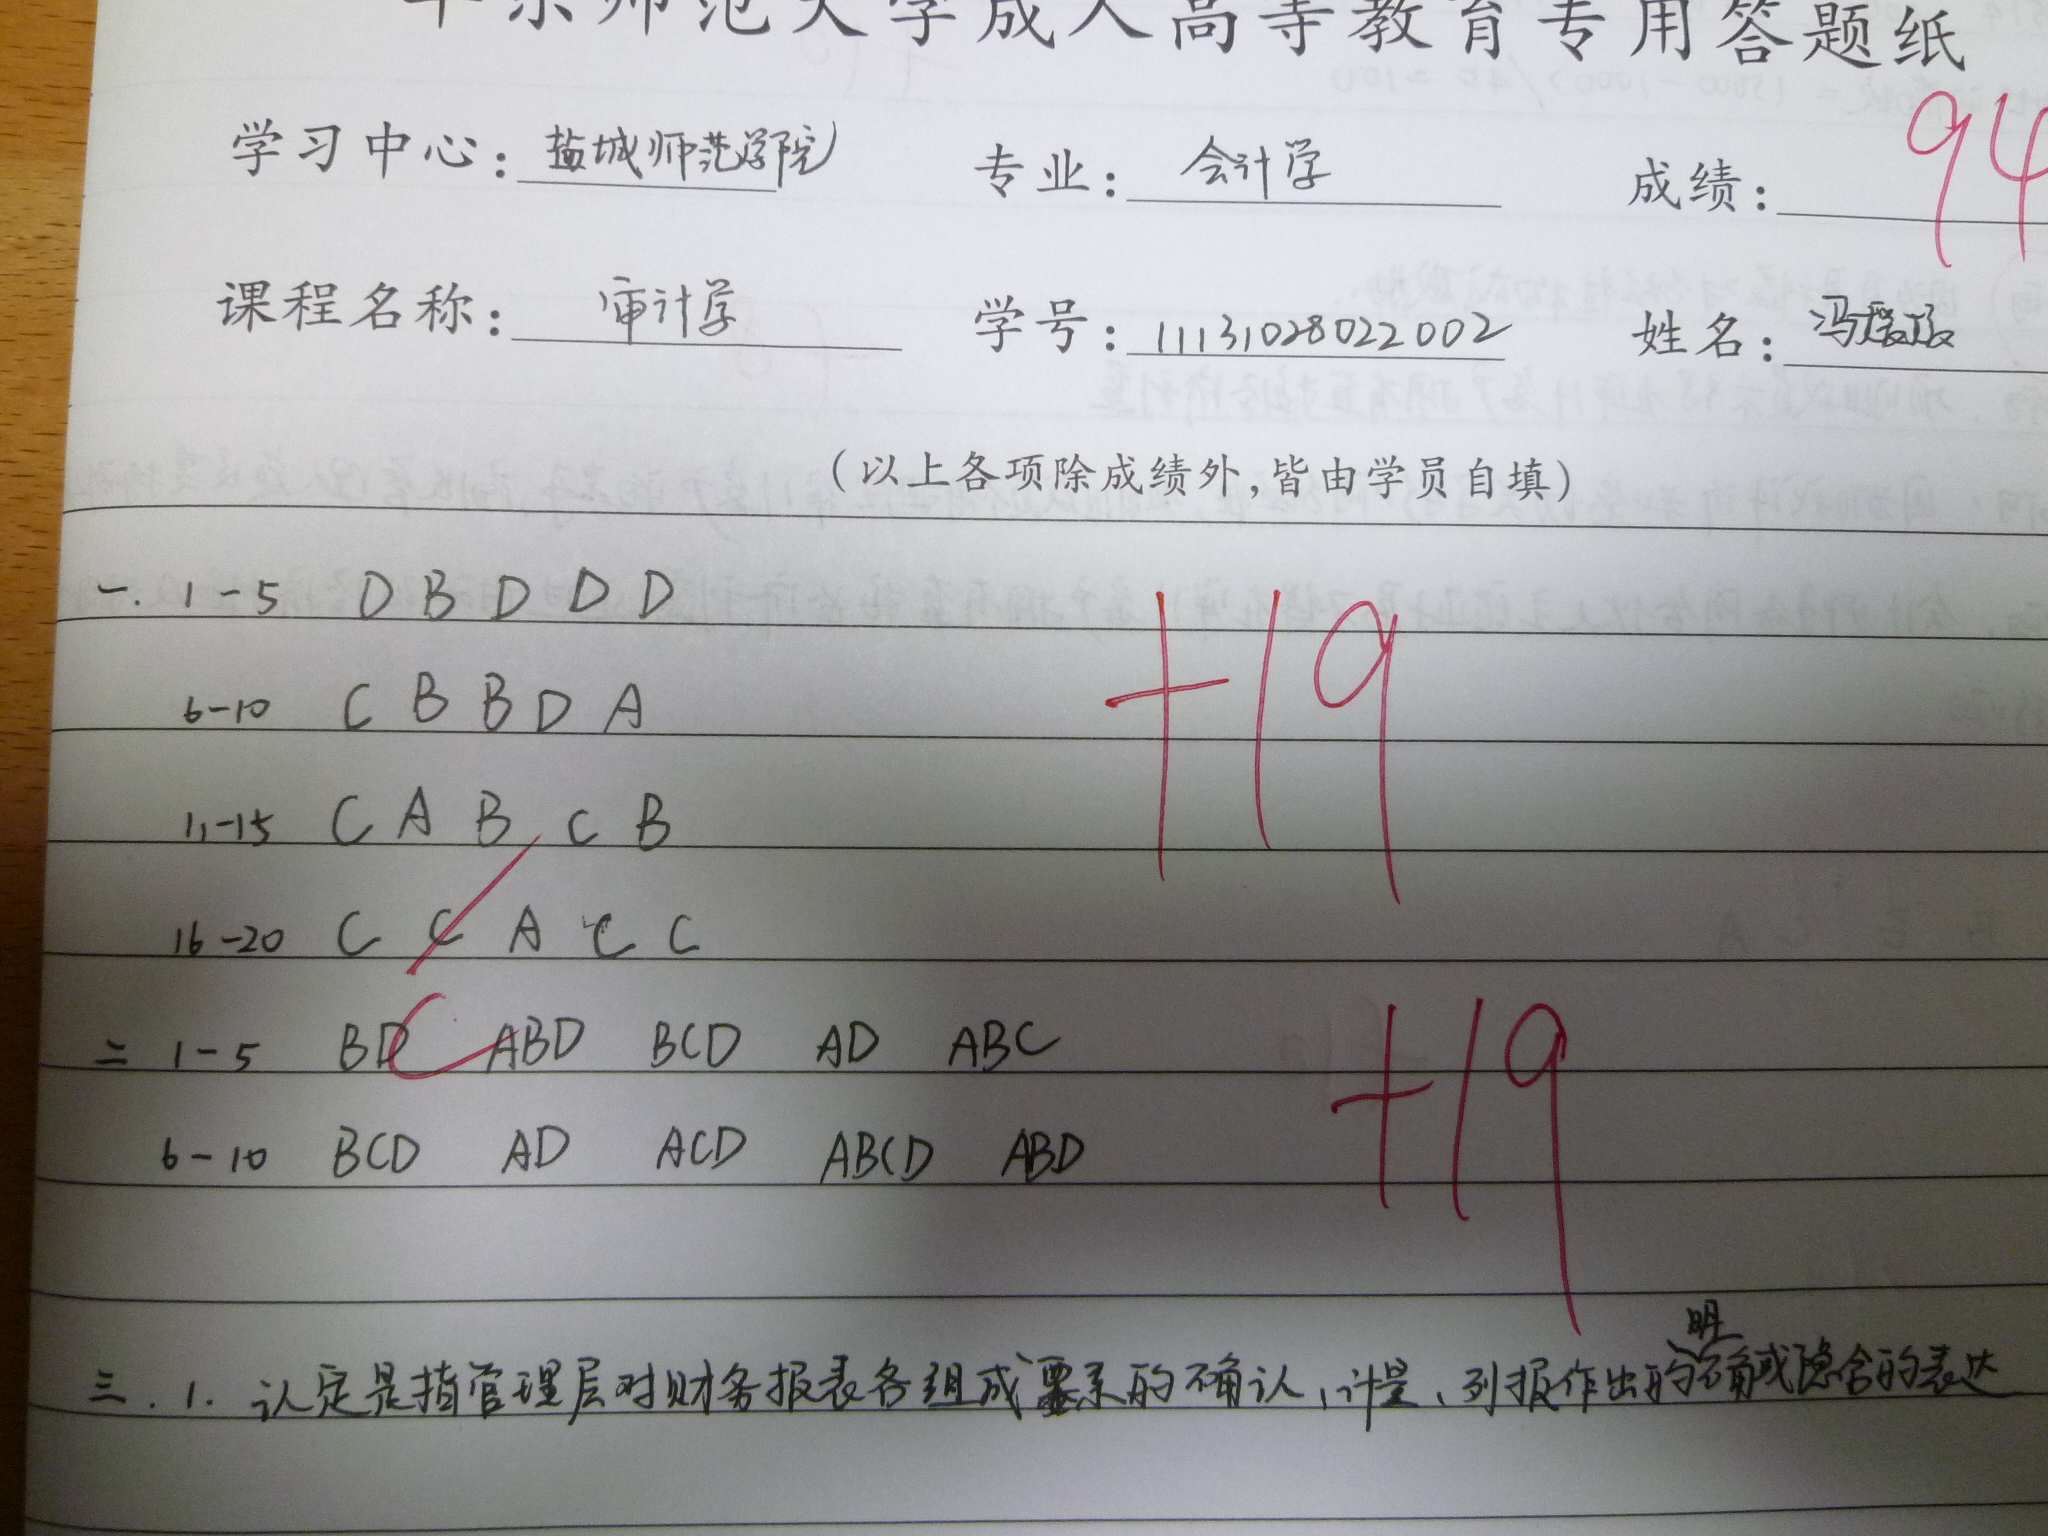 华东师范大学成人高等教育专用答题纸
学习中心: 盐城师范学院 专业: 会计学 成绩: 94
课程名称: 审计学 学号: 11131028022002 姓名: 冯
(以上各项除成绩外,皆由学员自填)
一. 1-5 D B D D D
6-10 C B B D A
+19
11-15 C A B C B
16-20 C C A C C
二 1-5 BD ABD BCD AD ABC
+19
6-10 BCD AD ACD ABCD ABD
三. 1. 认定是指管理层对财务报表各组成要素的确认、计量、列报作出的明确或隐含的表达